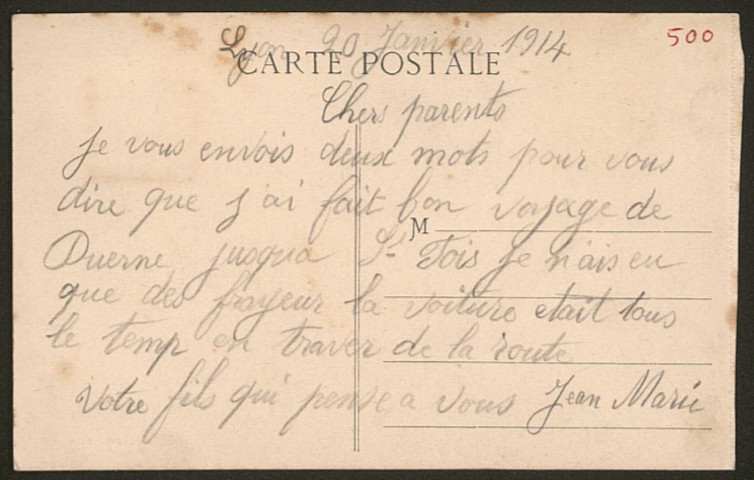 Lyon 20 Janvier 1914
500
CARTE POSTALE
Chers parents
Je vous envois deux mots pour vous
dire que j'ai fait bon voyage de
M
Duerne jusqua St Fois je n'ais eu
que des frayeur la voiture etait tous
le temp en traver de la route
Votre fils qui pense a vous Jean Marie